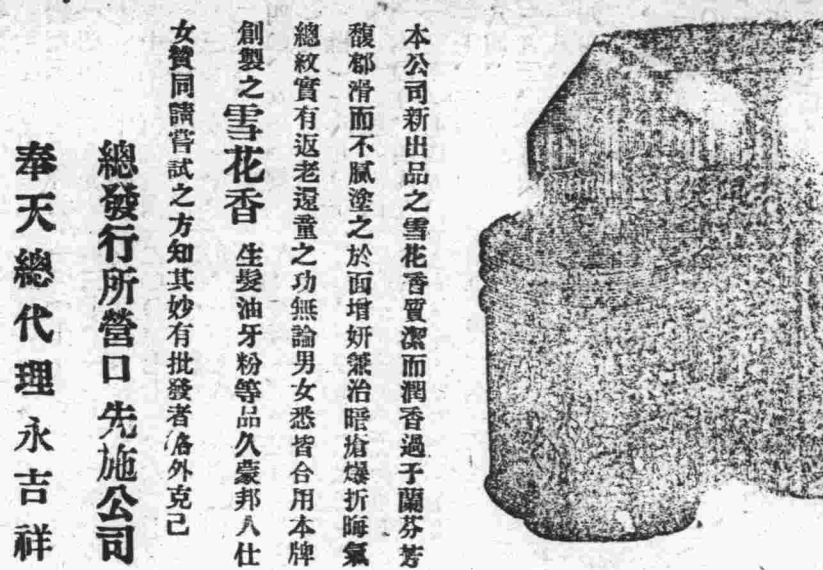 本公司新出品之雪花香質潔而潤香過于蘭芬芳
馥郁滑而不膩塗之於面增妍兼治暗瘡爆折晦氣
總紋實有返老還童之功無論男女悉皆合用本牌
創製之雪花香生髮油牙粉等品久蒙邦人仕
女贊同請嘗試之方知其妙有批發者格外克己
總發行所營口先施公司
奉天總代理永吉祥